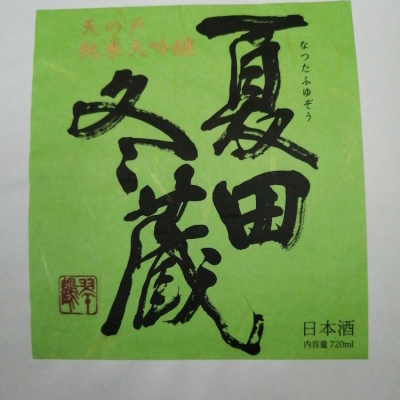 夏田
冬蔵
なつたふゆぞう
天の戸
純米大吟醸
日本酒
内容量 720ml